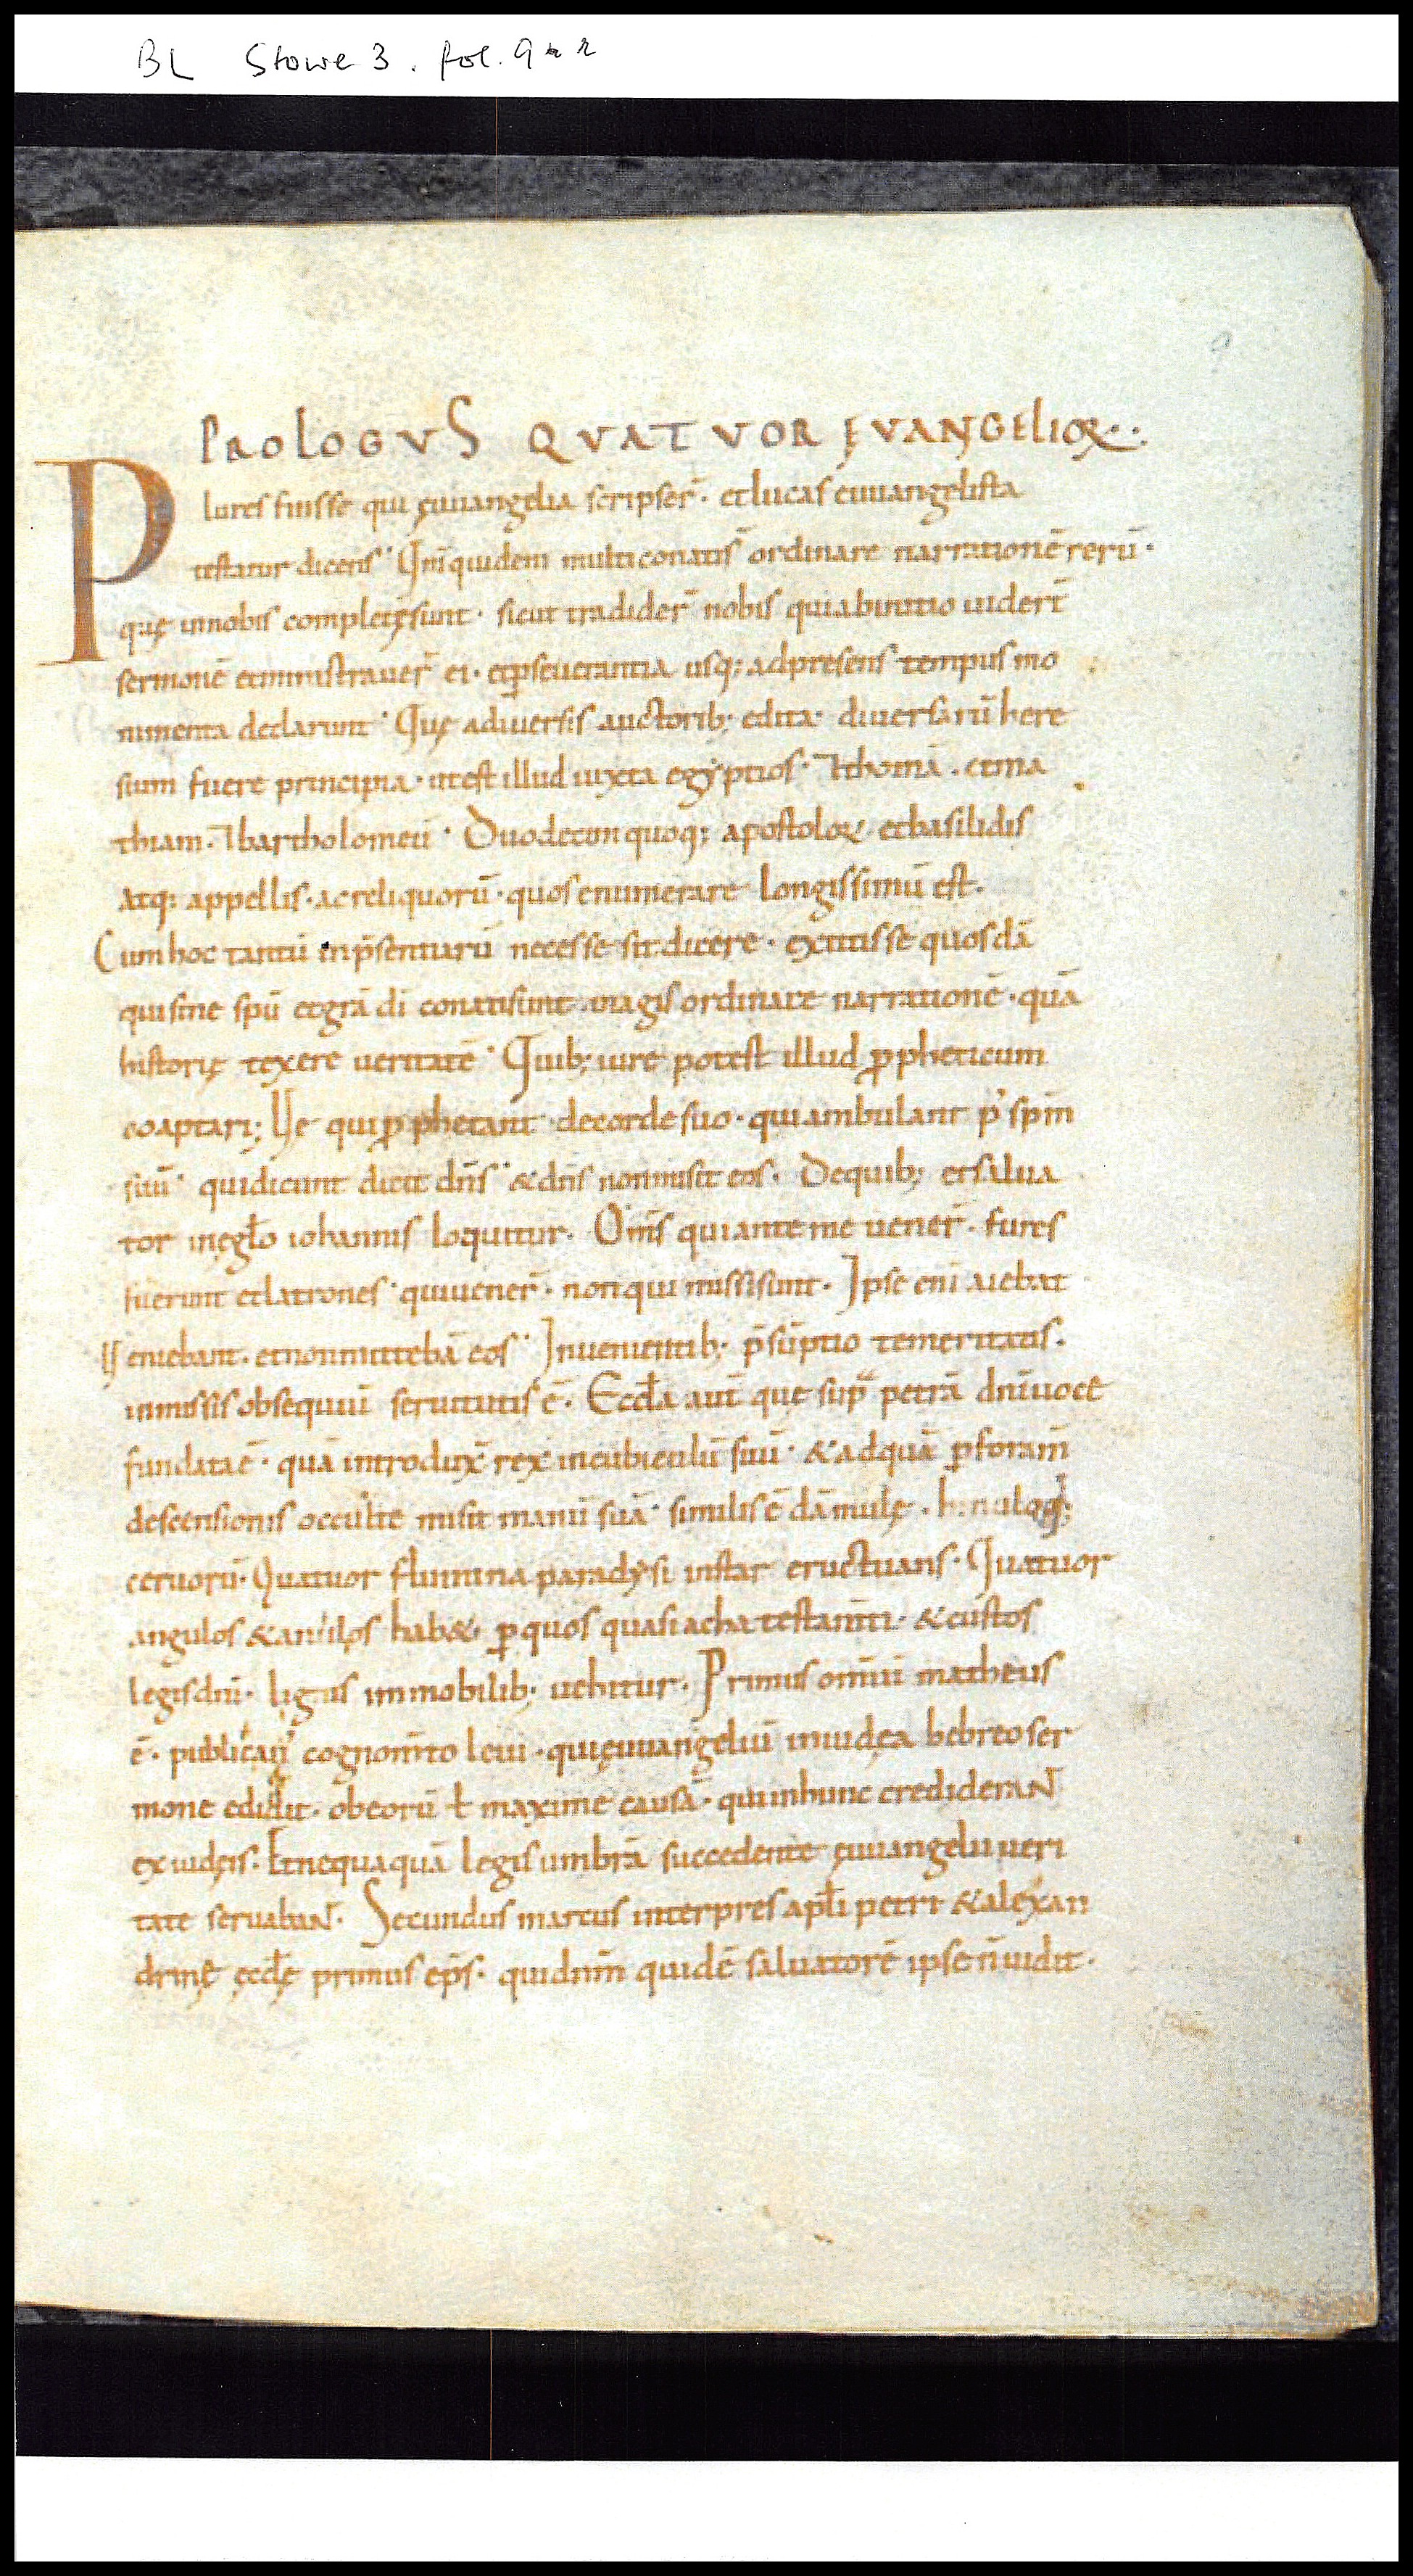 BL Stowe 3. fol. 9 r
PROLOGVS QVATVOR ĘVANGELIOꝜ··
Plures fuisse qui ęuuangelia scripser̄· et lucas euuangelista
testatur dicens· Qm̄ quidem multi conatis̄ ordinare narrationē rerū·
quę in nobis completęsunt· sicut tradider̄ nobis qui ab initio uider̄t
sermonē et ministrauer̄ ei· et ꝑseuerantia usq; ad presens tempus mo
numenta declarunt· Quę a diuersis auctorib; edita· diuersarū here
sium fuere principia· ut est illud iuxta egẏptios· ⁊ thomā· et ma
thiam· ⁊ bartholomeū· Duodecim quoq; apostoloꝝ et basilidis
atq; appellis· ac reliquorū· quos enumerare longissimū est·
Cum hoc tantū in p̄sentiarū necesse sit dicere· extitisse quosdā
qui sine spū et grā dī conati sunt magis ordinare narrationē· quā
historię texere ueritatē· Quib; iure potest illud ꝓpheticum
coaptari; Ue qui ꝓphetant de corde suo· qui ambulant p᾽ spm̄
suū· qui dicunt dicit dn̄s· & dn̄s non misit eos· De quib; et salua
tor in ęgl̄o iohannis loquitur· Om̄s qui ante me uener̄· fures
fuerunt et latrones· qui uener̄· non qui missi sunt· Ipse eni aiebat
Ueniebant· et non mittebā eos· In uenientib; p̄sūptio temeritatis·
in missis obsequiū seruitutis ē· Eccl̄a aut̄ que sup̄ petrā dn̄i uoce
fundata ē· quā introdux̄ rex in cubiculū suū· & ad quā ꝑ foram̄
descensionis occulte misit manū suā· similis ē dāmulę·
ceruorū· Quatuor flumina paradẏsi instar eructuans· Quatuor
angulos & anulos hab&· ꝑ quos quasi acha testam̄ti· & custos
legis dn̄i· lignis immobilib; uehitur· Primus omniū matheus
ē· publican᾽ cognom̄to leui· qui ęuuangeliū in iudęa hebreo ser
mone edidit· ob eorū ł maxime causā· qui in hunc crediderant
ex iudęis· Et nequaquā legis umbrā succedente ęuuangelii ueri
tate seruabant· Secundus marcus interpres apl̄i petri & alexan
drinę ęccl̄ę primus ep̄s· qui dn̄m quidē saluatorē ipse n̄ uidit·